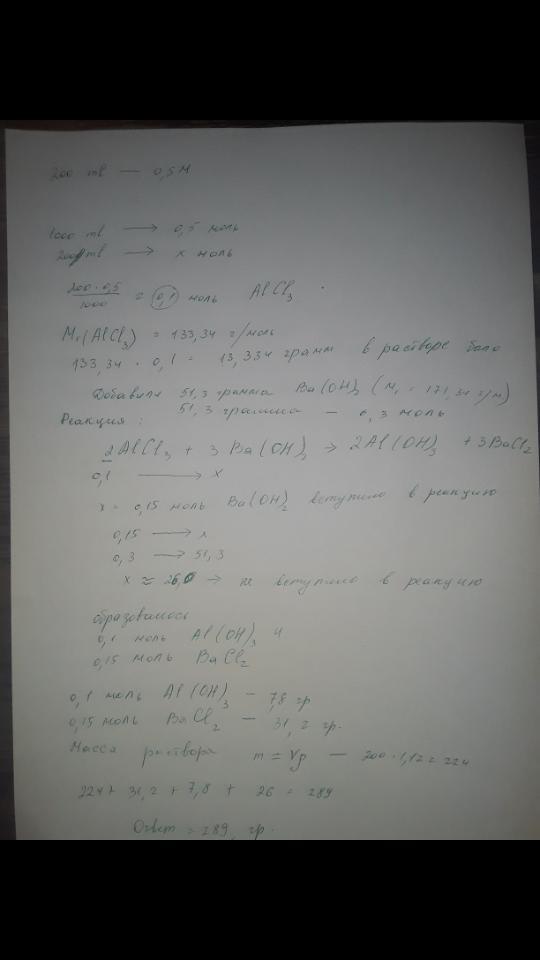 200 ml — 0,5M
1000 ml → 0,5 моль
200 ml → x моль
200·0,5/1000 = 0,1 моль AlCl3
Mr(AlCl3) = 133,34 г/моль
133,34 · 0,1 = 13,334 грамм в растворе было
Добавили 51,3 грамма Ba(OH)2 (Mr = 171,34 г/м)
51,3 грамма — 0,3 моль
Реакция:
2AlCl3 + 3Ba(OH)2 → 2Al(OH)3 + 3BaCl2
0,1 → x
x = 0,15 моль Ba(OH)2 вступило в реакцию
0,15 → x
0,3 → 51,3
x ≈ 26,0 → не вступило в реакцию
образовалось
0,1 моль Al(OH)3 и
0,15 моль BaCl2
0,1 моль Al(OH)3 — 7,8 гр
0,15 моль BaCl2 — 31,2 гр.
Масса раствора m = Vρ — 200·1,12 = 224
224 + 31,2 + 7,8 + 26 = 289
Ответ = 289, гр.